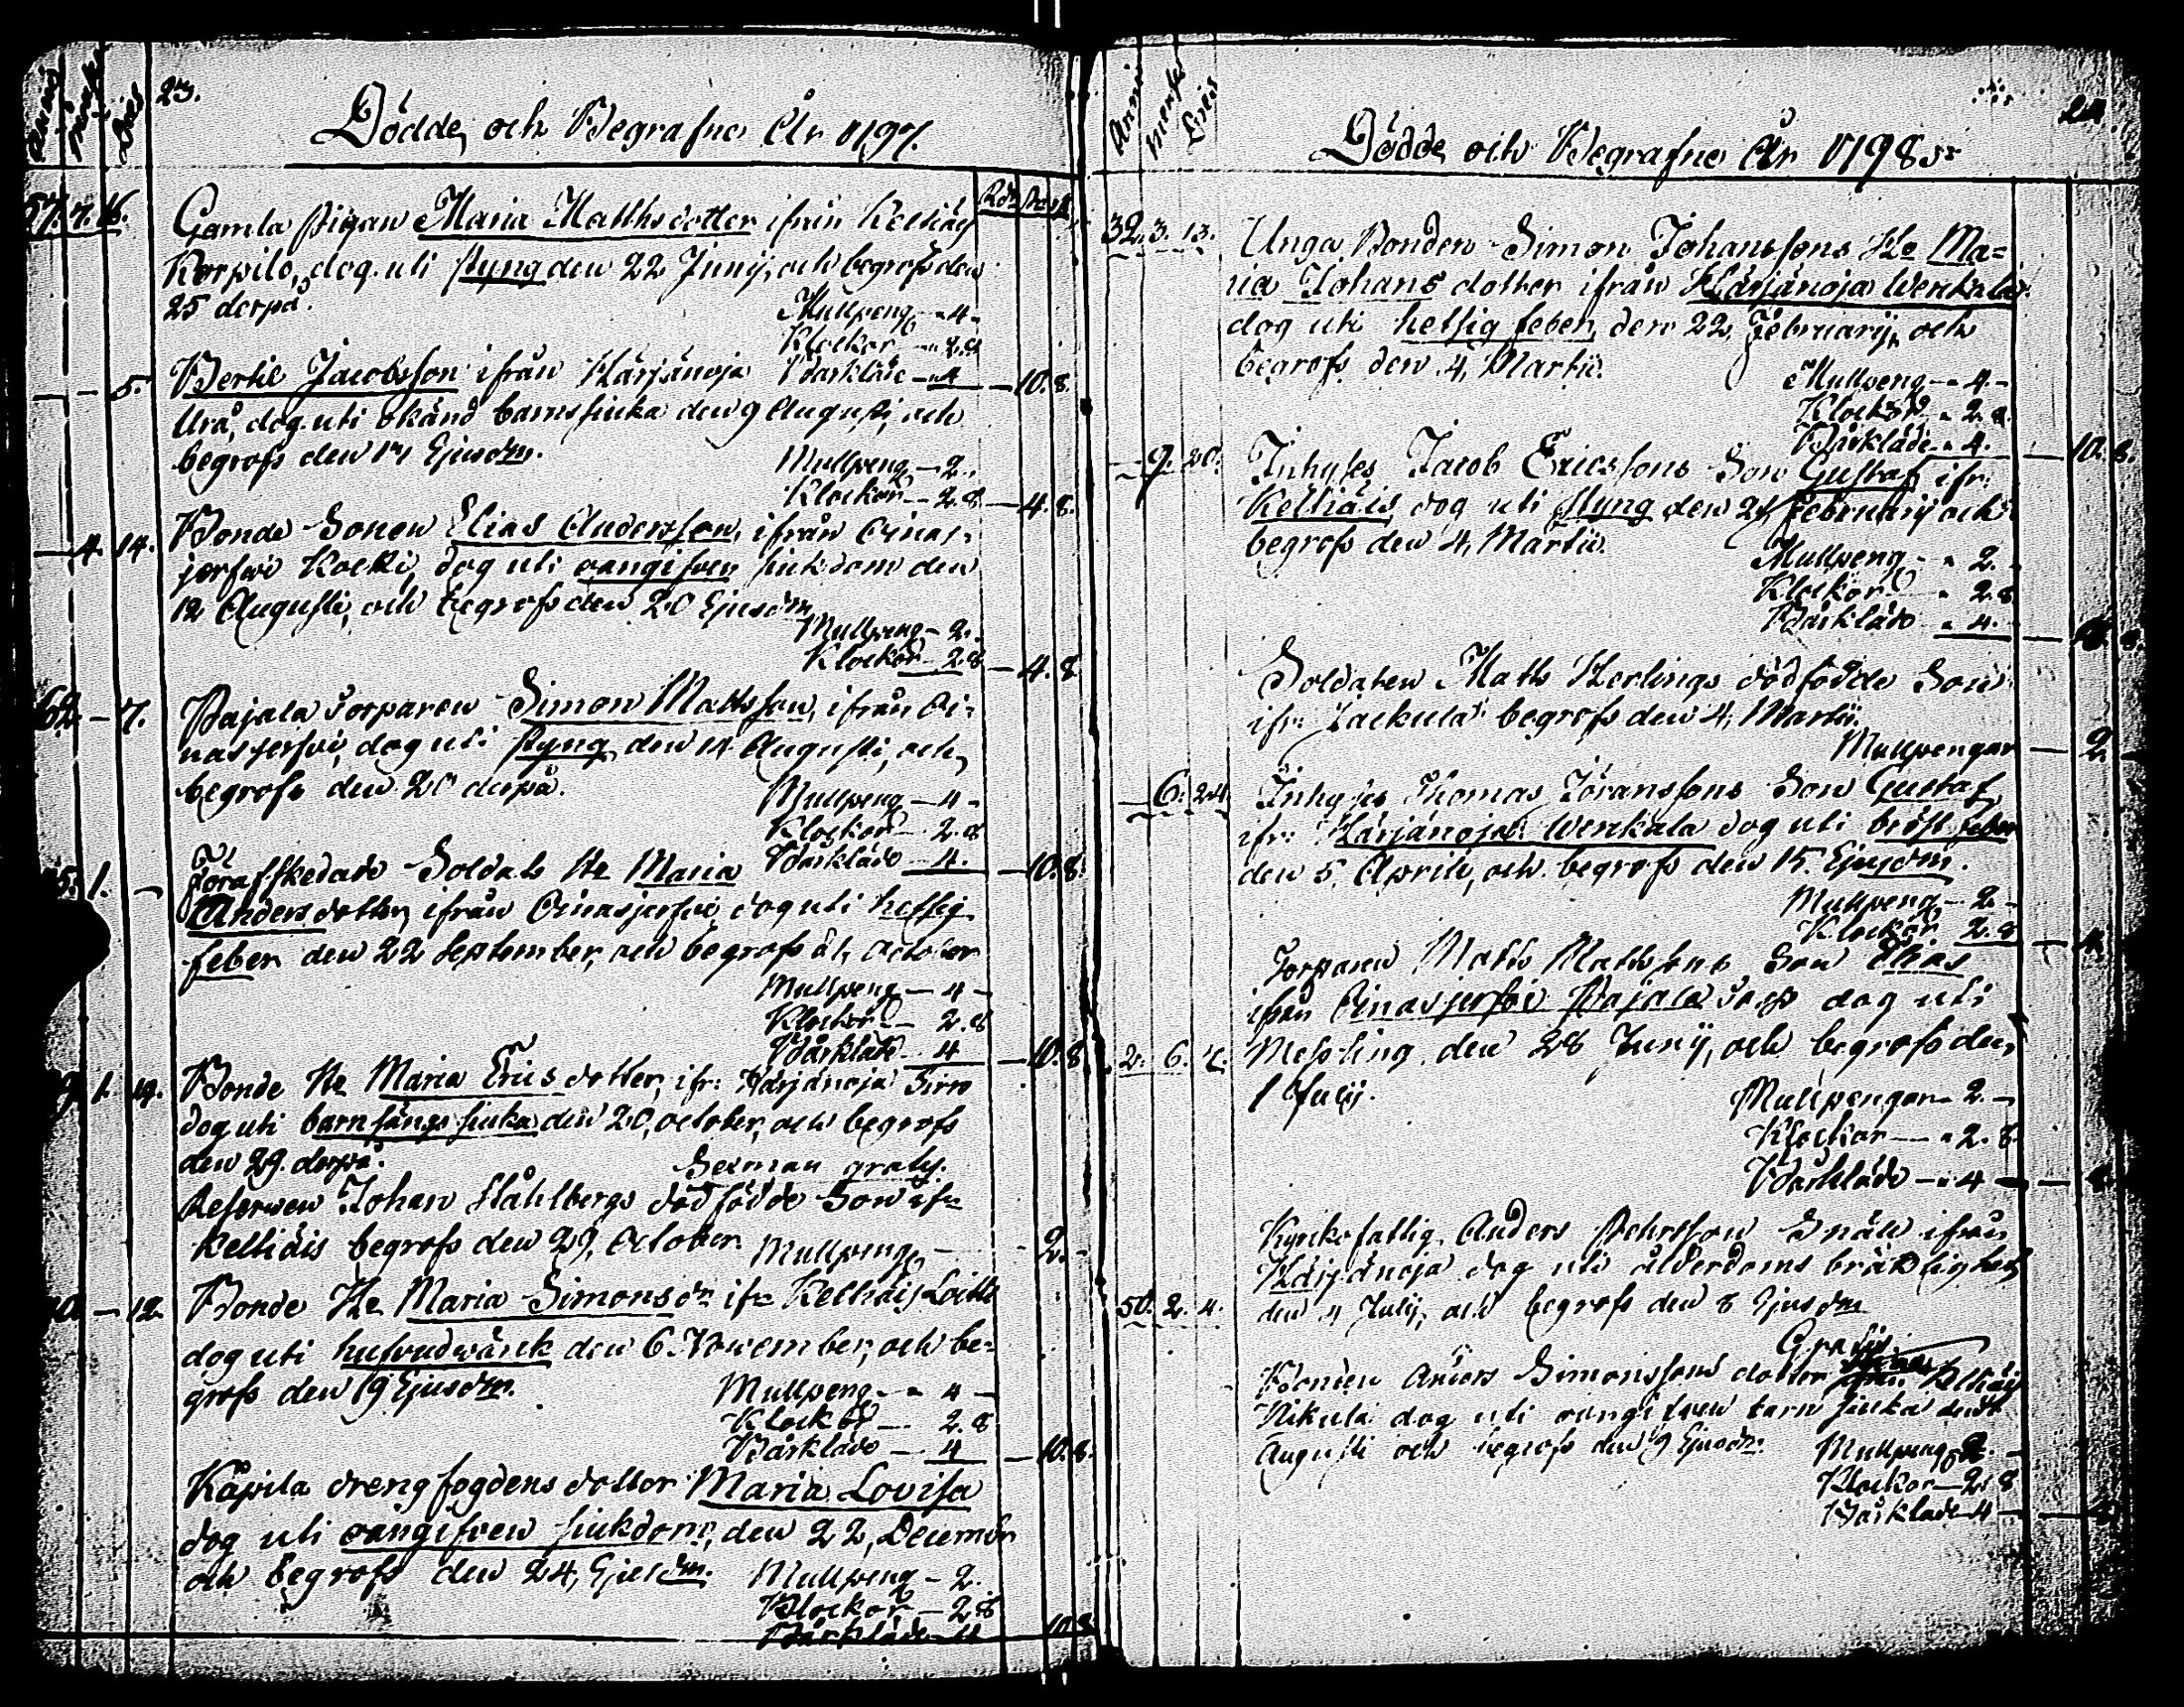 Anni
Månad
Dies
23.
Dödde och Begrafne År 1797.
Rdr
57. 7. 16. Gamla Pigan Maria Matthsdotter ifrån Keltiäis
Korpilo, dog uti styng den 22 Junij, och begrofs den
25 derpå.
Mullpeng - 4 -
Klockor - 2.8
Bårkläde - 4 - 10.8.
- - 5. Bertil Jacobsson ifrån Härjänoja
Urå, dog uti okänd barnsiuka den 9 Augusti, och
begrofs den 14 Ejusdm.
Mullpeng - 2.
Klockor - 2.8 - 4.8.
- 4. 14. Bonde Sonen Elias Andersson, ifrån Oinas-
jerfwi Kocki dog uti oangifven siukdom den
12 Augusti, och begrofs den 20 Ejusdm
Mullpeng - 2.
Klockor - 2.8 - 4.8
62. - 7. Pajala Torparen Simon Mattsson, ifrån Oi-
nasjerfwi, dog uti styng den 14 Augusti, och
begrofs den 20 derpå.
Mullpeng - 4 -
Klockor - 2.8
Bårkläde - 4. - 10.8.
5. 1. - Förafskedade Soldats H:u Maria
Anders dotter, ifrån Oinasjerfwi, dog uti hetsig
feber den 22 September, och begrofs d. 1, October
Mullpeng - 4 -
Klockor - 2.8
Bårkläde - 4 - 10.8
1. 14. Bonde H:u Maria Erics dotter, ifr: Härjänoja
dog uti barnsängs siuka den 20, october, och begrofs
den 29. derpå.
gratis.
Reserwen Johan Ståhlbergs dödfödde Son ifr
Keltiäis begrofs den 29, October. Mullpeng - - 2. -
- 12. Bonde H:u Maria Simonsdr ifr Keltiäis
dog uti hufvudwärck den 6 November, och be-
grofs den 19 Ejusdm.
Mullpeng - 4 -
Klockor - 2.8
Bårkläde - 4 - 10.8.
Kåpila drengfogdens dotter Maria Lovisa
dog uti oangifven siukdom, den 22, Decembr
och begrofs den 24, Ejusdm.
Mullpeng - 2.
Klockor - 2.8
Bårkläde - 4 10.8
Anni
Dies
24
Dödde och Begrafne År 1798.
32. 3. 13. Unga Bonden Simon Johanssons H:u Ma=
ria Johans dotter ifrån Härjänoja Wenkala
dog uti hetsig feber, den 22, Februarij, och
begrofs den 4, Martii.
Mullpeng - 4. -
Klockor - 2.8.
Bårkläde - 4. - 10. 8.
- 9. 20. Inhyses Jacob Ericssons Son Gustaf ifr:
Keltiäis, dog uti styng den 24 februarij och
begrofs den 4, Martii.
Mullpeng - 2.
Klockor - 2.8
Bårkläde - 4. -
Soldaten Matts Herlings dödfödde Son
ifr: begrofs den 4, Martii.
Mullpengar - 2 -
- 6. 24 Inhyses Thomas Jöranssons Son Gustaf
ifr: Härjänoja Wenkala dog uti bröst feber
den 5. Aprile, och begrofs den 15. Ejusdm.
Mullpeng - 2 -
Klockor 2.8 - 4.
Torparen Matts Mattssons Son Elias
ifrån Oinasjerfwi Pajala Torp dog uti
2. 6. Messling, den 28 Junij, och begrofs den
1 Julij.
Mullpengar - 2. -
Klockor - 2.8.
Bårkläde - 4 -
Kyrkofattig. Anders Pehrsson Snäll ifrån
Härjänoja dog uti ålderdoms bräcklighet
50. 2. 4. den 4 Julij, och begrofs den 8 Ejusdm
Gratis.
Bonden Anders Simonssons dotter Keltiäis
Nikula dog uti oangifven barn siuka den
Augusti och begrofs den 9 Ejusdm.
Mullpeng - 2. -
Klockor - 2.8
Bårkläde - 4 -